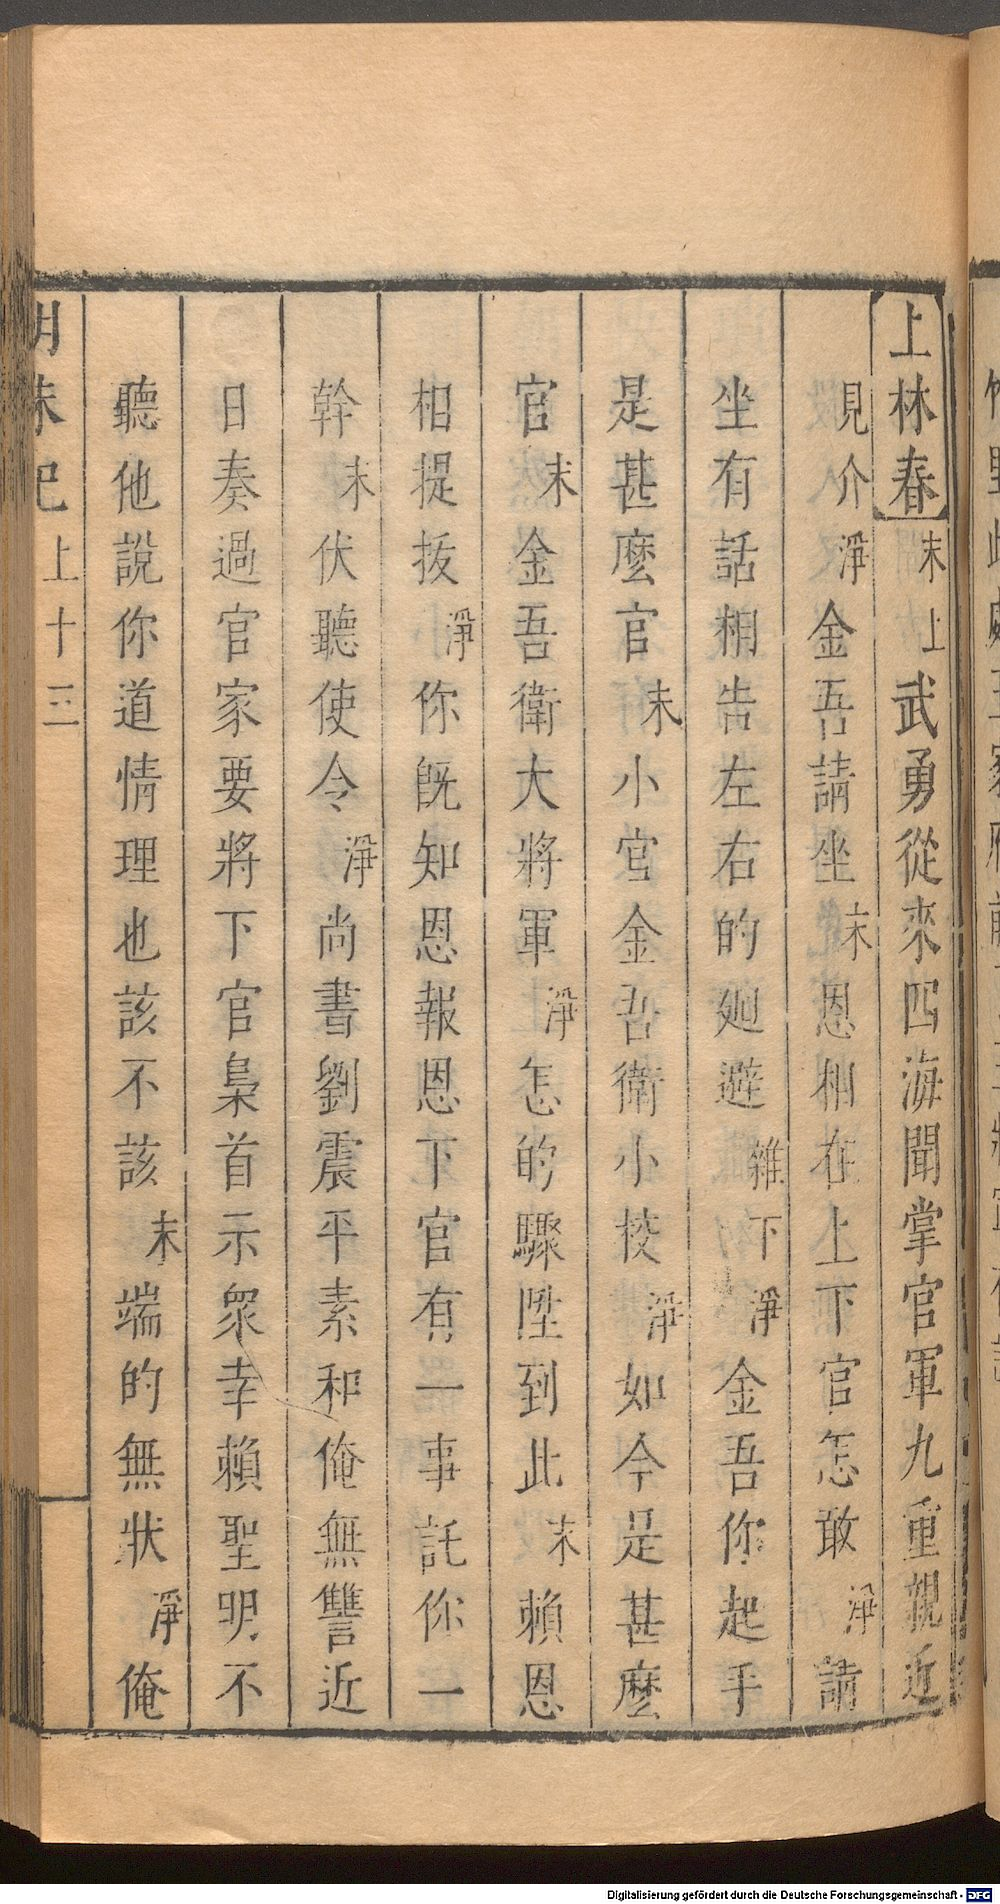 上林春末上武勇從來四海聞掌官軍九重親近
見介淨金吾請坐末恩相在上下官怎敢淨請
坐有話相告左右的廻避雜下淨金吾你起手
是甚麼官末小官金吾衛小校淨如今是甚麼
官末金吾衛大將軍淨怎的驟陞到此末賴恩
相提拔淨你旣知恩報恩下官有一事託你一
幹末伏聽使令淨尚書劉震平素和俺無讐近
日奏過官家要將下官梟首示衆幸賴聖明不
聽他說你道情理也該不該末端的無狀淨俺
明珠記 上 十三
Digitalisierung gefördert durch die Deutsche Forschungsgemeinschaft - DFG